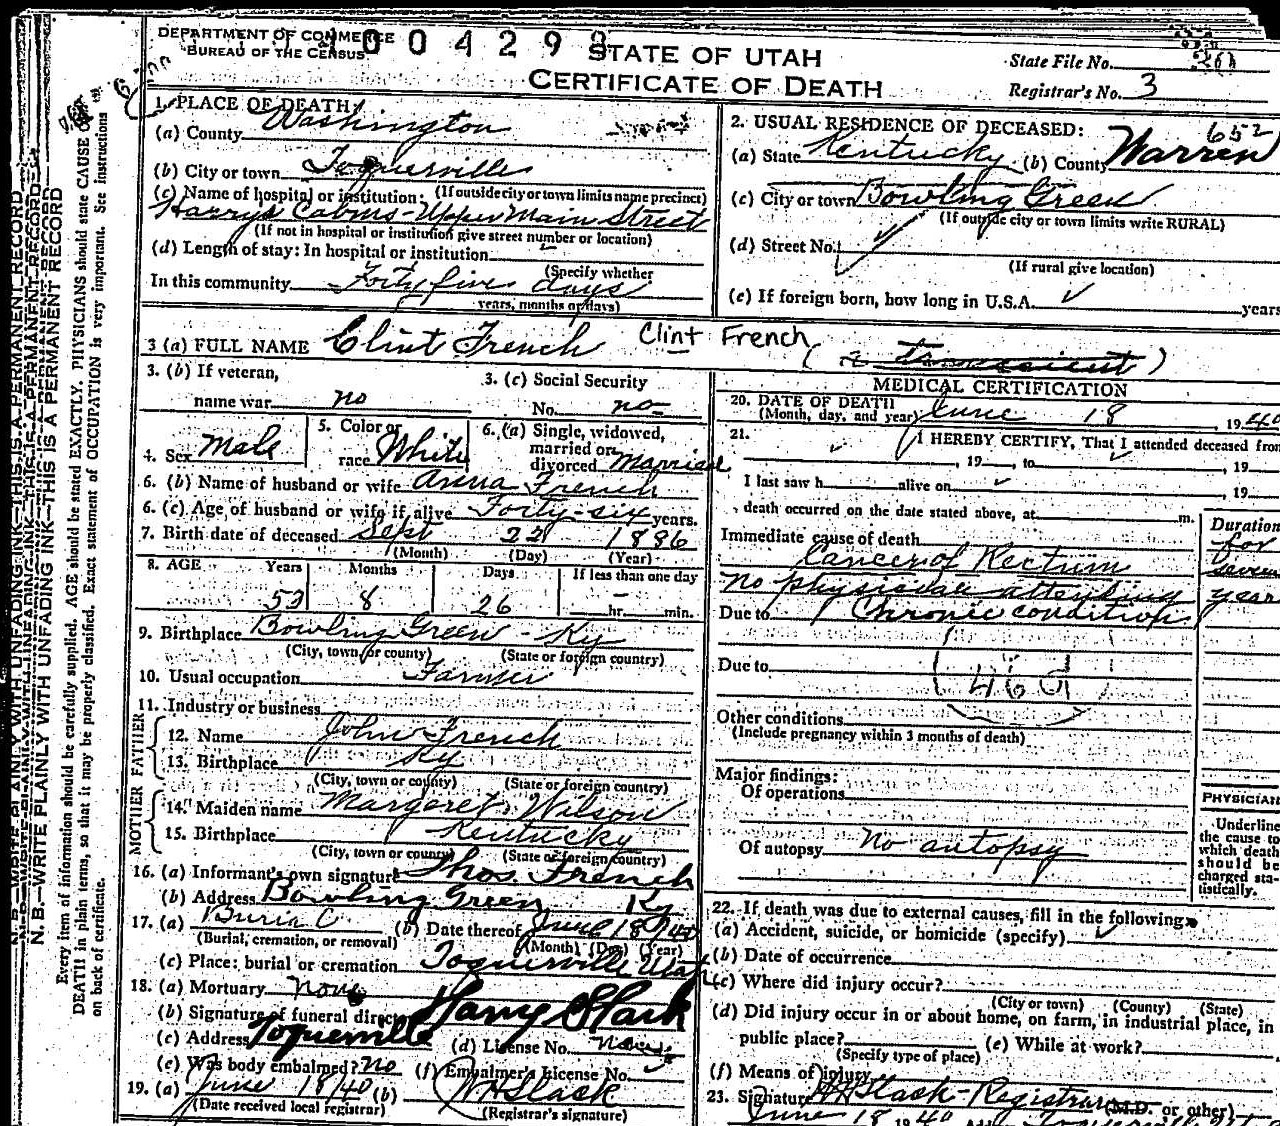 DEPARTMENT OF COMMERCE
BUREAU OF THE CENSUS
STATE OF UTAH
CERTIFICATE OF DEATH
State File No.
Registrar's No. 3
1. PLACE OF DEATH
(a) County Washington
(b) City or town Toquerville
(If outside city or town limits name precinct)
(c) Name of hospital or institution:
Harrys Cabins-Upper Main Street
(If not in hospital or institution give street number or location)
(d) Length of stay: In hospital or institution
(Specify whether
In this community Forty five days
years, months or days)
2. USUAL RESIDENCE OF DECEASED: 652
(a) State Kentucky (b) County Warren
(c) City or town Bowling Green
(If outside city or town limits write RURAL)
(d) Street No.
(If rural give location)
(e) If foreign born, how long in U.S.A. years
3 (a) FULL NAME Clint French Clint French (a Transcient)
3. (b) If veteran,
name war no
3. (c) Social Security
No. no
4. Sex Male
5. Color or
race White
6. (a) Single, widowed,
married or
divorced Married
6. (b) Name of husband or wife Arena French
6. (c) Age of husband or wife if alive Forty-six years.
7. Birth date of deceased Sept 22 1886
(Month) (Day) (Year)
8. AGE Years Months Days If less than one day
53 8 26 hr. min.
9. Birthplace Bowling Green - Ky
(City, town, or county) (State or foreign country)
10. Usual occupation Farmer
11. Industry or business
FATHER
12. Name John French
13. Birthplace Ky
(City, town or county) (State or foreign country)
MOTHER
14. Maiden name Margaret Wilson
15. Birthplace Kentucky
(City, town or county) (State or foreign country)
16. (a) Informant's own signature Thos. French
(b) Address Bowling Green Ky
17. (a) Burial (b) Date thereof June 18/40
(Burial, cremation, or removal) (Month) (Day) (Year)
(c) Place: burial or cremation Toquerville Utah
18. (a) Mortuary none
(b) Signature of funeral director Harry Slack
(c) Address Toquerville (d) License No. none
(e) Was body embalmed? no (f) Embalmer's License No.
19. (a) June 18/40 (b) WH Slack
(Date received local registrar) (Registrar's signature)
MEDICAL CERTIFICATION
20. DATE OF DEATH
(Month, day, and year) June 18, 1940
21. I HEREBY CERTIFY, That I attended deceased from
, 19 , to , 19
I last saw h alive on , 19
death occurred on the date stated above, at m.
Duration
Immediate cause of death for
Cancer of Rectum
no physician attending year
Due to Chronic condition
Due to
Other conditions
(Include pregnancy within 3 months of death)
Major findings:
Of operations
PHYSICIAN
Of autopsy No autopsy
Underline
the cause to
which death
should be
charged sta-
tistically.
22. If death was due to external causes, fill in the following:
(a) Accident, suicide, or homicide (specify)
(b) Date of occurrence
(c) Where did injury occur?
(City or town) (County) (State)
(d) Did injury occur in or about home, on farm, in industrial place, in
public place? (e) While at work?
(Specify type of place)
(f) Means of injury
23. Signature WH Slack-Registrar (M.D. or other)
June 18 1940
N. B.—WRITE PLAINLY WITH UNFADING INK—THIS IS A PERMANENT RECORD
Every item of information should be carefully supplied. AGE should be stated EXACTLY. PHYSICIANS should state CAUSE OF
DEATH in plain terms, so that it may be properly classified. Exact statement of OCCUPATION is very important. See instructions
on back of certificate.